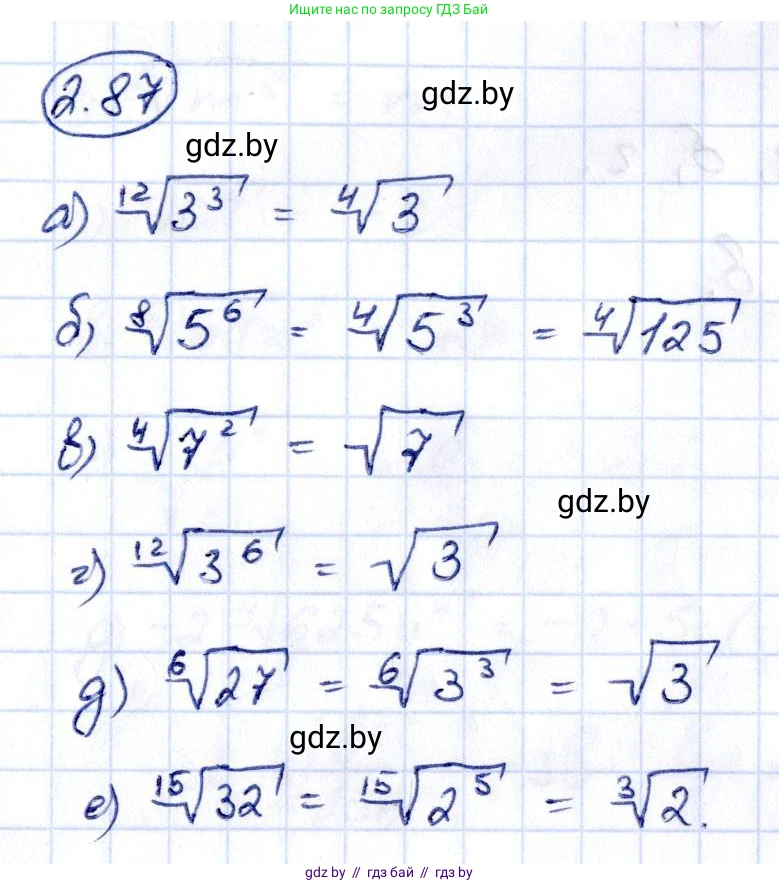 Ищите нас по запросу ГДЗ Бай
2.87
gdz.by
gdz.by
а) ¹²√3³ = ⁴√3
б) ⁸√5⁶ = ⁴√5³ = ⁴√125
в) ⁴√7² = √7
gdz.by
г) ¹²√3⁶ = √3
д) ⁶√27 = ⁶√3³ = √3
gdz.by
е) ¹⁵√32 = ¹⁵√2⁵ = ³√2.
gdz.by // гдз бай // гдз by